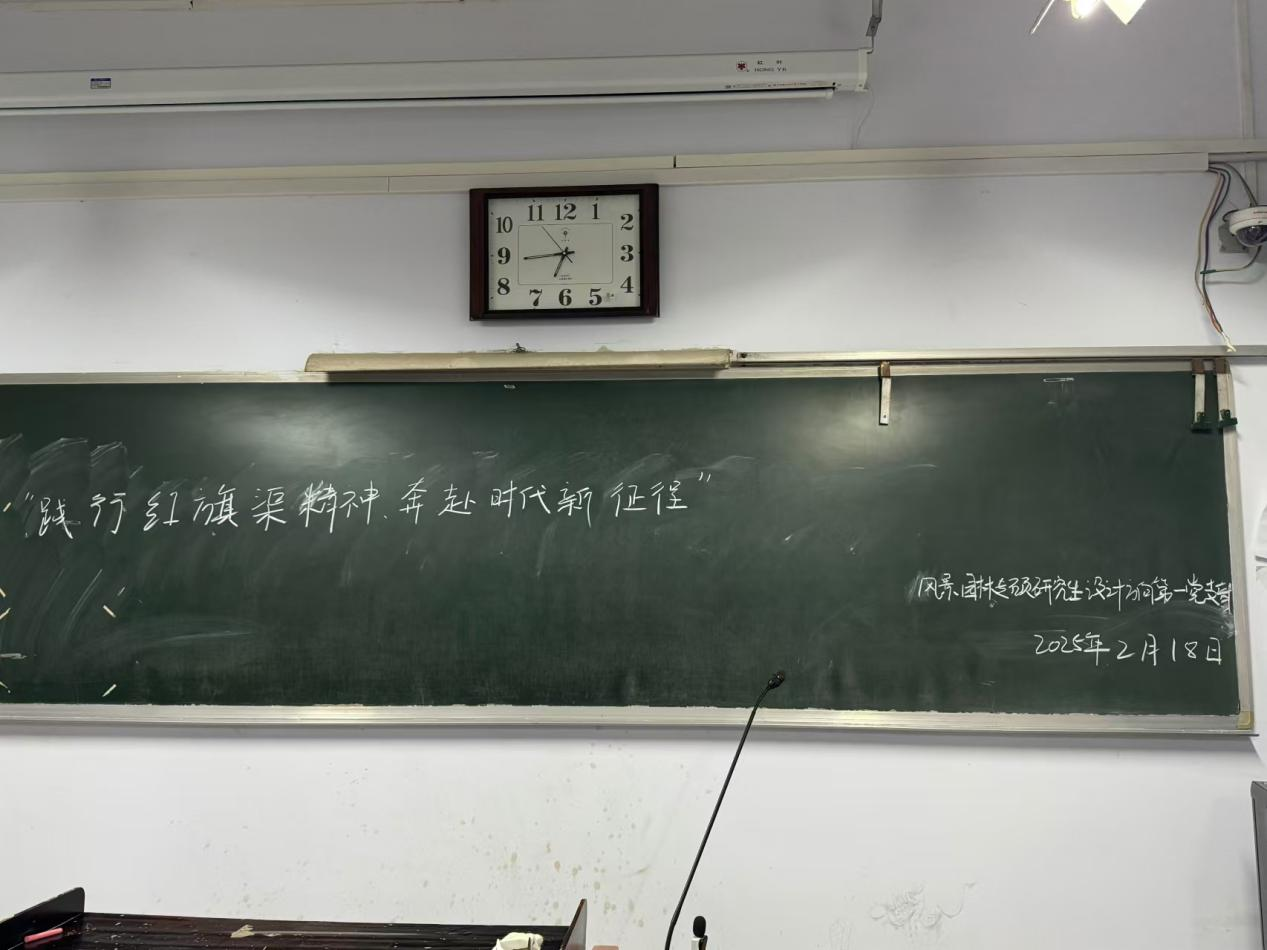 红叶
HONG YE
11 12 1
10 2
9 3
8 4
7 6 5
“践行红旗渠精神、奔赴时代新征程”
风景园林专硕研究生设计方向第一党支部
2025年2月18日